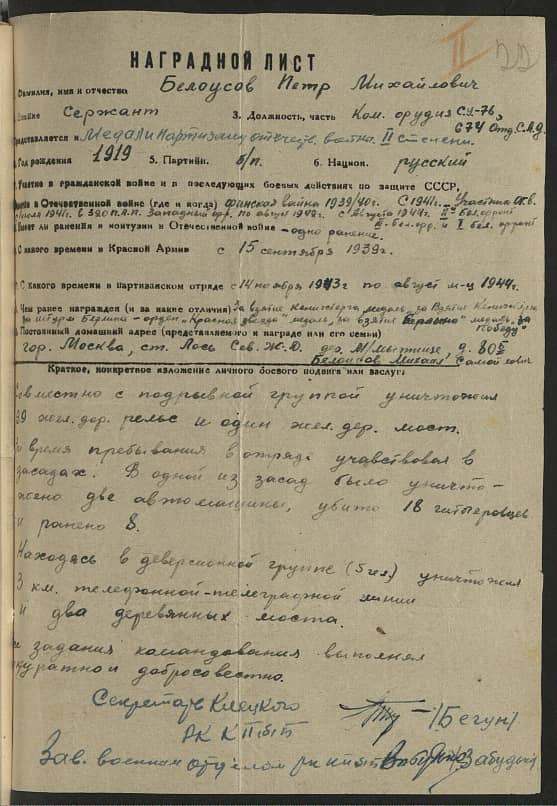 II 22
НАГРАДНОЙ ЛИСТ
Фамилия, имя и отчество Белоусов Петр Михайлович
Звание Сержант 3. Должность, часть Ком. орудия СУ-76,
674 Отд. С.А.Д.
Представляется к Медали Партизану отечеств. войны II степени.
Год рождения 1919 5. Партийн. б/п. 6. Национ. русский
Участие в гражданской войне и в последующих боевых действиях по защите СССР,
в Отечественной войне (где и когда) Финская война 1939/40г. С 1941г. Участник От.в.
1941г. в 390 п.А.П. Западный фр. по август 1942г. с Августа 1944г. II бел. фронт
Имеет ли ранения и контузии в Отечественной войне - одно ранение. бел. фр. и I бел. фронт
С какого времени в Красной Армии с 15 сентября 1939г.
С какого времени в партизанском отряде с 14 ноября 1943г по август м-ц 1944г.
Чем ранее награжден (и за какие отличия) За взятие Кенигсберга медаль за Взятие Кенигсберга
за штурм Берлина - орден "Красная звезда" медаль, за взятие Берлина" медаль, за
Победу"
Постоянный домашний адрес (представляемого к награде или его семьи)
гор. Москва, ст. Лось Сев. Ж.Д. д. 80
Белоусов Михаил Самойлович
Краткое, конкретное изложение личного боевого подвига или заслуг:
Совместно с подрывной группой уничтожил
39 жел. дор. рельс и один жел. дер. мост.
Во время пребывания в отряде учавствовал в
засадах. В одной из засад было уничто-
жено две автомашины, убито 18 гитлеровцев
и ранено 8.
Находясь в деверсионной группе (5 чел.) уничтожил
3 км. телефонной-телеграфной линии
и два деревянных моста.
задания командования выполнял
аккуратно и добросовестно.
Секретарь Клецкого
РК КП(б)Б /Бегун/
Зав. военным отделом рк кп(б)Б /Забудько/